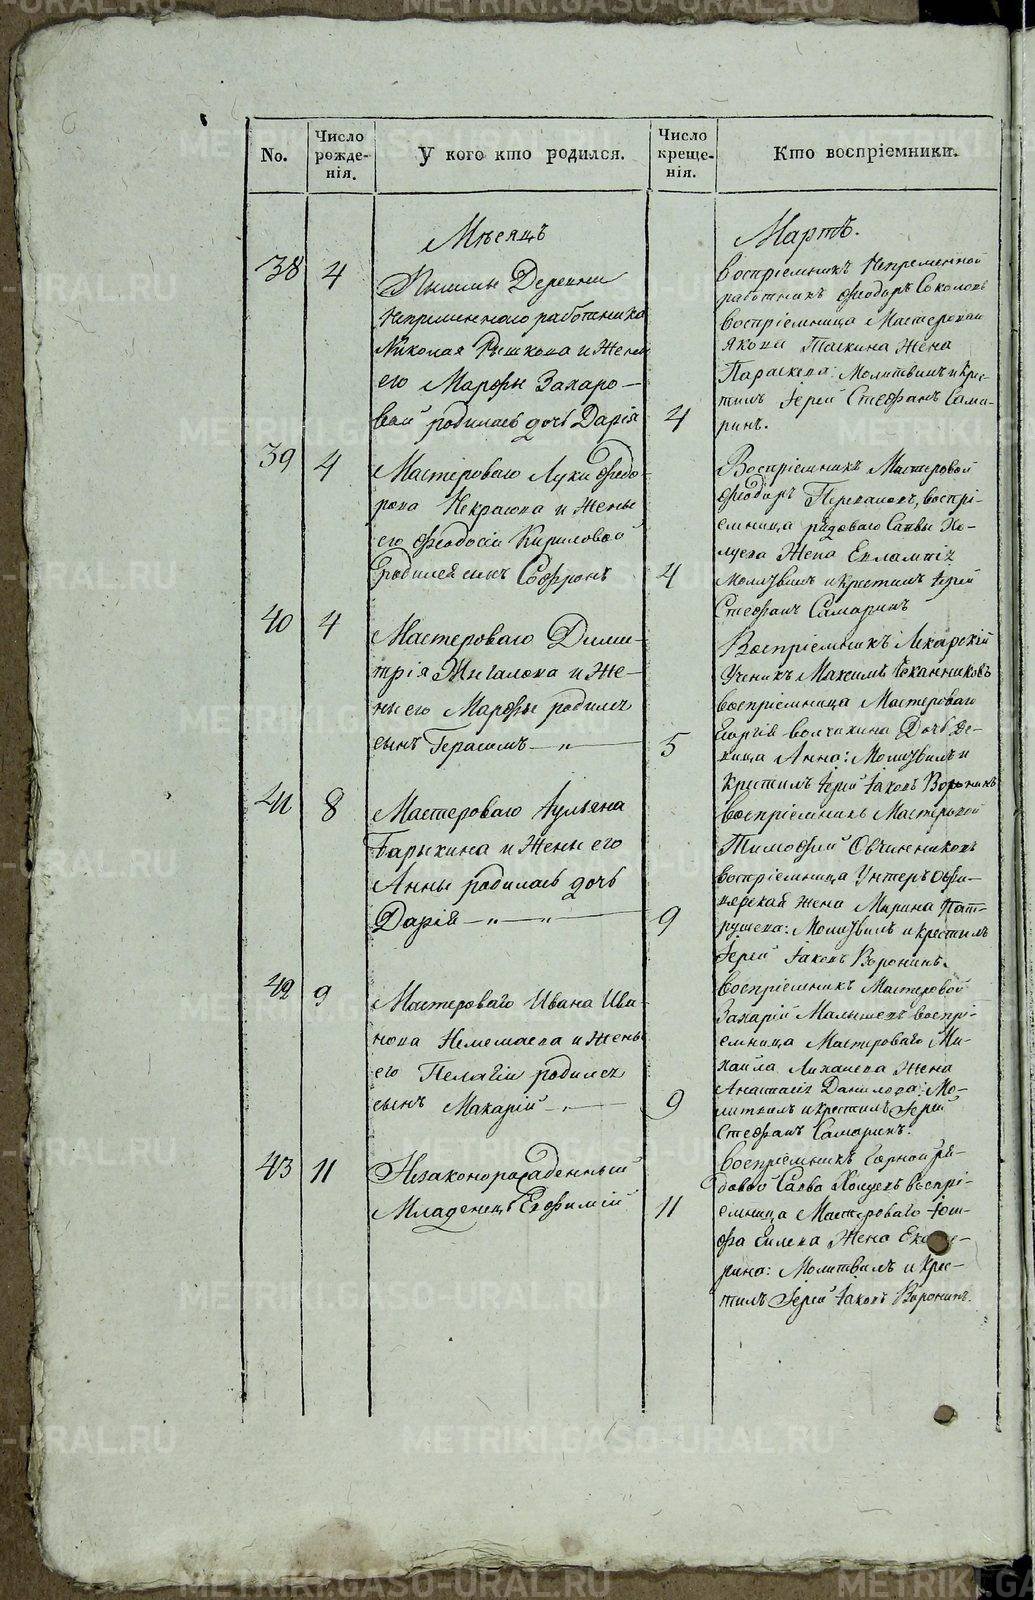 No.
Число рожденія.
У кого кто родился.
Число крещенія.
Кто воспріемники.
Мѣсяцъ
Мартъ.
38
4
Деревни
Непременнаго работника
Николая и Жены
его Марфы Захаро-
вой родилась дочь Дарія
4
воспріемникъ Непременной
работникъ Феодоръ Соколовъ
воспріемница Мастероваго
Якова Жена
Параскева: Молитвилъ и крес-
тилъ Іерей Стефанъ Сама-
ринъ.
39
4
Мастероваго Луки Федо-
рова Некрасова и Жены
его Феодосіи Кириловой
родился сынъ Софронъ
4
Воспріемникъ Мастеровой
Феодоръ воспрі-
емница рядоваго Саввы Хо-
Жена Евлампія
молитвилъ и крестилъ Іерей
Стефанъ Самаринъ
40
4
Мастероваго Дими-
трія Жигалова и Же-
ны его Марфы родился
сынъ Герасимъ — „ —
5
Воспріемникъ Лекарскій
Ученикъ Максимъ Чеканниковъ
воспріемница Мастероваго
Георгія Волчихина Дочь де-
вица Анна: Молитвилъ и
крестилъ Іерей Іаковъ Воронинъ
41
8
Мастероваго Іульяна
Барыкина и Жены его
Анны родилась дочь
Дарія — „ — „ —
9
воспріемникъ Мастеровой
Тимофей Овчинниковъ
воспріемница Унтеръ офи-
церская жена Марина Пат-
рушева: Молитвилъ и крестилъ
Іерей Іаковъ Воронинъ.
42
9
Мастероваго Ивана Ива-
нова и Жены
его Пелагіи родился
сынъ Макарій — „ —
9
воспріемникъ Мастеровой
Захарій Малышевъ воспрі-
емница Мастероваго Ми-
хаила Лихачева Жена
Анастасія Данилова: Мо-
литвилъ и крестилъ Іерей
Стефанъ Самаринъ.
43
11
Незаконорожденный
Младенецъ Евфимій
11
воспріемникъ Горной ря-
довой Савва воспрі-
емница Мастероваго Іоси-
фа Жена Екате-
рина: Молитвилъ и Крес-
тилъ Іерей Іаковъ Воронинъ.
METRIKI.GASO-URAL.RU